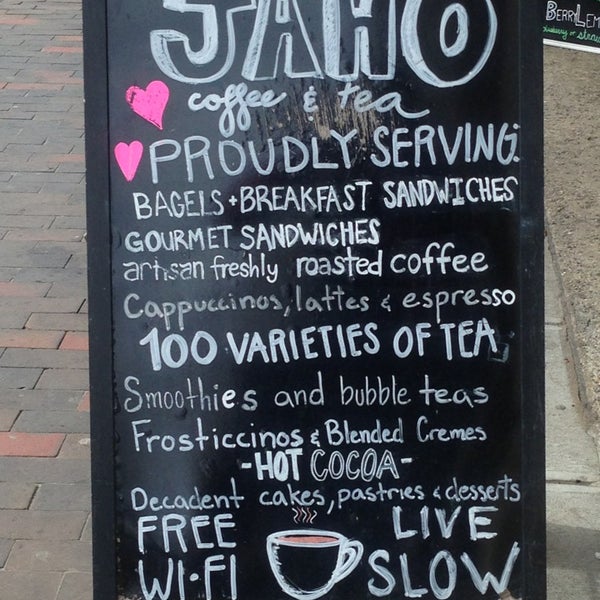 JAHO
coffee & tea
PROUDLY SERVING:
BAGELS + BREAKFAST SANDWICHES
GOURMET SANDWICHES
artisan freshly roasted coffee
Cappuccinos, lattes & espresso
100 VARIETIES OF TEA
Smoothies and bubble teas
Frosticcinos & Blended Cremes
-HOT COCOA-
Decadent cakes, pastries & desserts
FREE WI-FI
LIVE SLOW
BERRY LEM